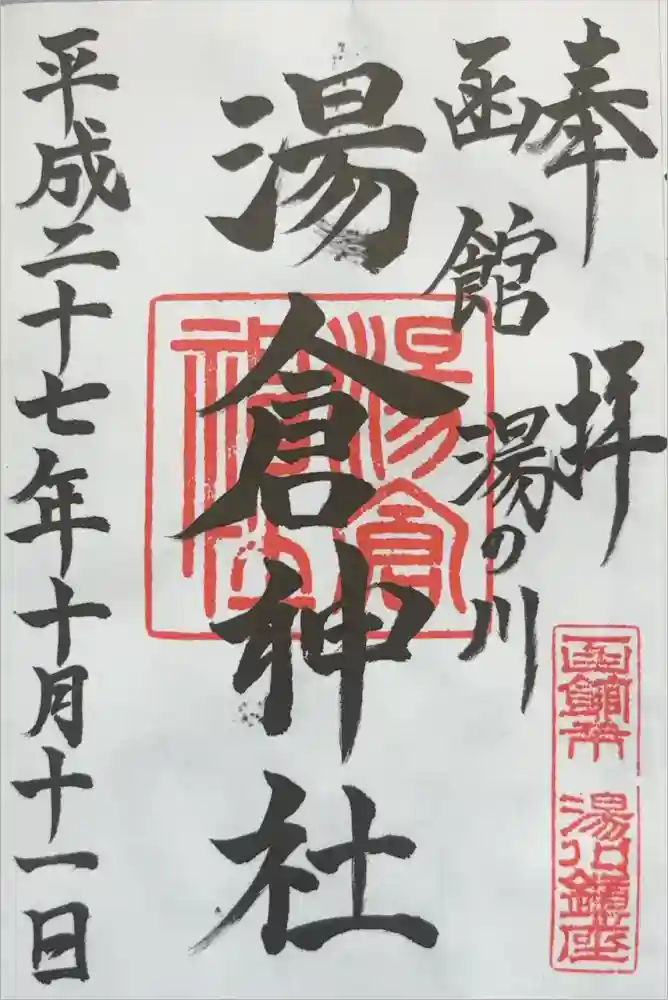 奉拝
函館湯の川
湯倉神社
平成二十七年十月十一日
湯倉
神社
函館市 湯川鎮座